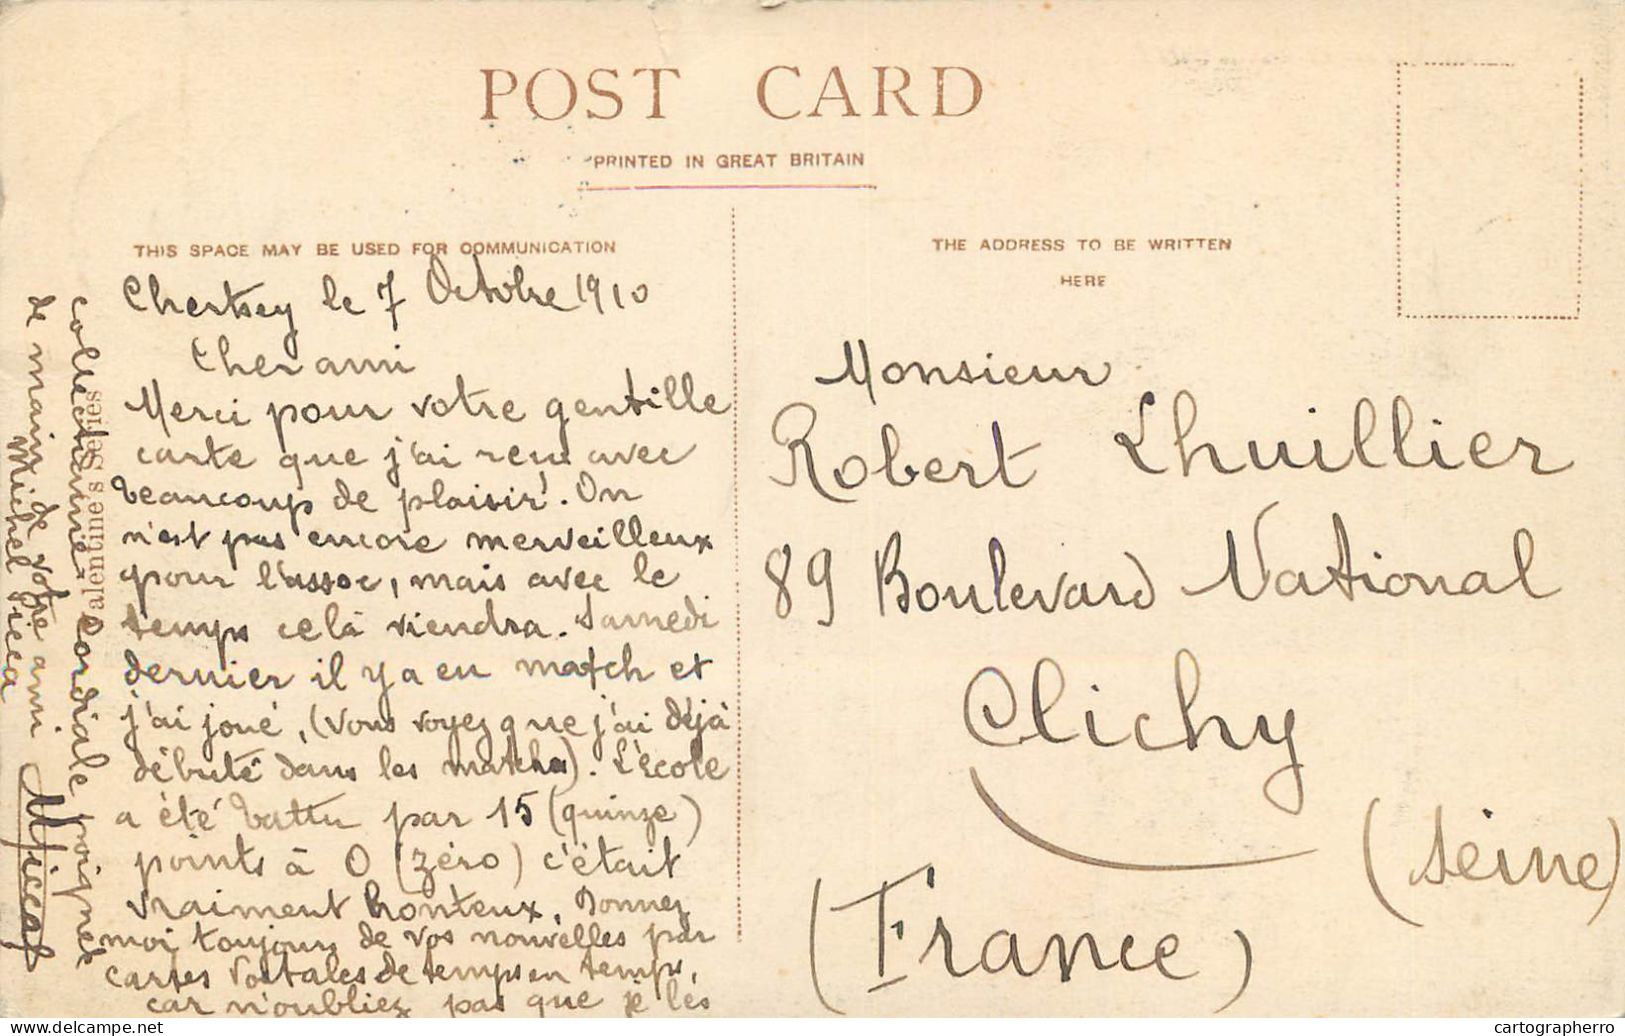 POST CARD
PRINTED IN GREAT BRITAIN
THIS SPACE MAY BE USED FOR COMMUNICATION
THE ADDRESS TO BE WRITTEN
HERE
Chertsey le 7 Octobre 1910
Cher ami
Merci pour votre gentille
carte que j'ai reçu avec
beaucoup de plaisir. On
n'est pas encore merveilleux
pour l'assoc, mais avec le
temps celà viendra. Samedi
dernier il y a eu match et
j'ai joué, (Vous voyez que j'ai déjà
débuté dans les matchs). L'école
a été battu par 15 (quinze)
points à 0 (zéro) c'était
vraiment honteux. Donnez
moi toujours de vos nouvelles par
cartes Postales de temps en temps,
car n'oubliez pas que je les
collectionne. Cordiale poignée
de main de votre ami
Michel Picca
MPicca
Valentine's Series
Monsieur
Robert Lhuillier
89 Boulevard National
Clichy
(Seine)
(France)
cartographerro
www.delcampe.net